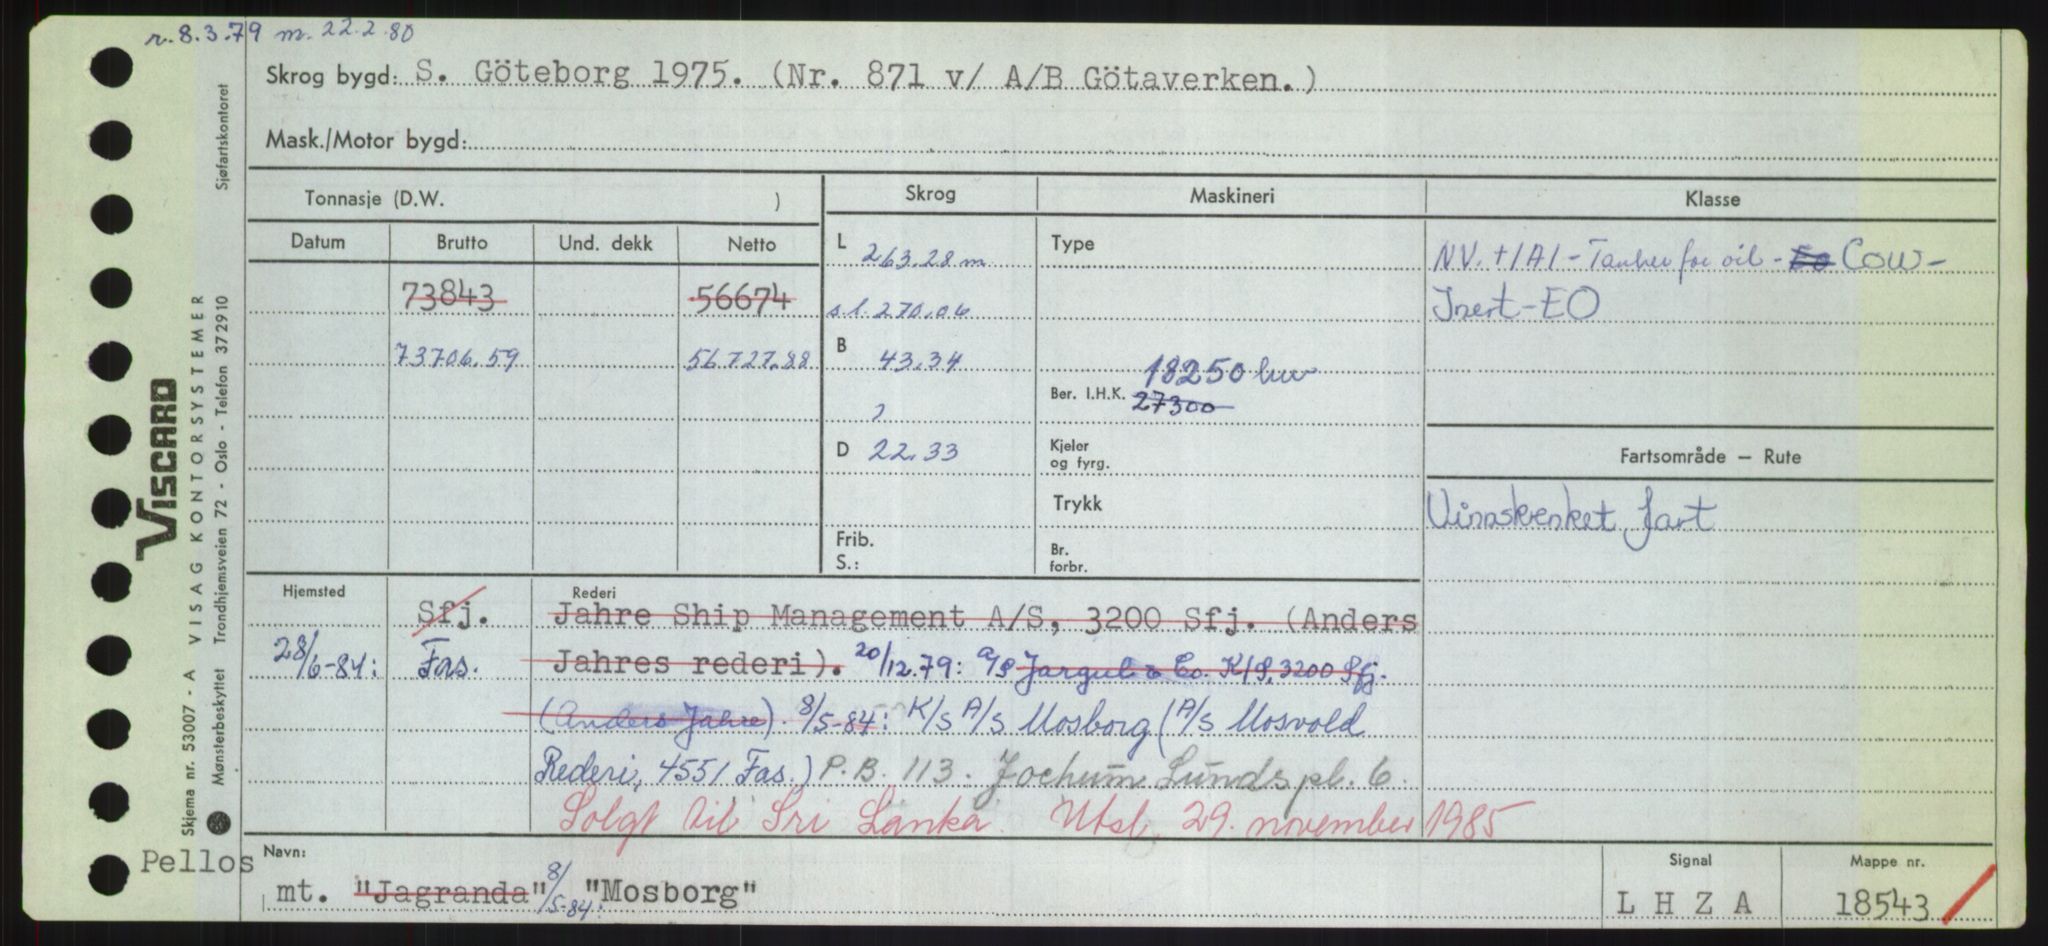 r. 8.3.79 m. 22.2.80
Skrog bygd: S. Göteborg 1975. (Nr. 871 v/ A/B Götaverken.)
Mask./Motor bygd:
Tonnasje (D.W. )
Skrog
Maskineri
Klasse
Datum Brutto Und. dekk Netto
L 263.28 m
Type
NV. +1A1 - Tanker for oil - EO COW -
73843 56674
s.l. 270.06
Inert - EO
73706.59 56.727.88
B 43.34
18250 hw
Ber. I.H.K. 27300
D 22.33
Kjeler
og fyrg.
Fartsområde — Rute
Trykk
Uinnskrenket fart
Frib.
S.:
Br.
forbr.
Hjemsted
Rederi
Sfj. Jahre Ship Management A/S, 3200 Sfj. (Anders
28/6-84: Fas. Jahres rederi). 20/12.79: A/S Jargul & Co. K/S, 3200 Sfj.
(Anders Jahre). 8/5-84: K/S A/S Mosborg (A/S Mosvold
Rederi, 4551 Fas.) P.B. 113. Jochum Lunds pl. 6.
Solgt til Sri Lanka. Utsl. 29. november 1985
Pellos
Navn:
mt. "Jagranda" 8/5-84: "Mosborg"
Signal
L H Z A
Mappe nr.
18543
VISCARD
VISAG KONTORSYSTEMER
Skjema nr. 53007 - A
Mønsterbeskyttet Trondhjemsveien 72 - Oslo - Telefon 372910 Sjøfartskontoret